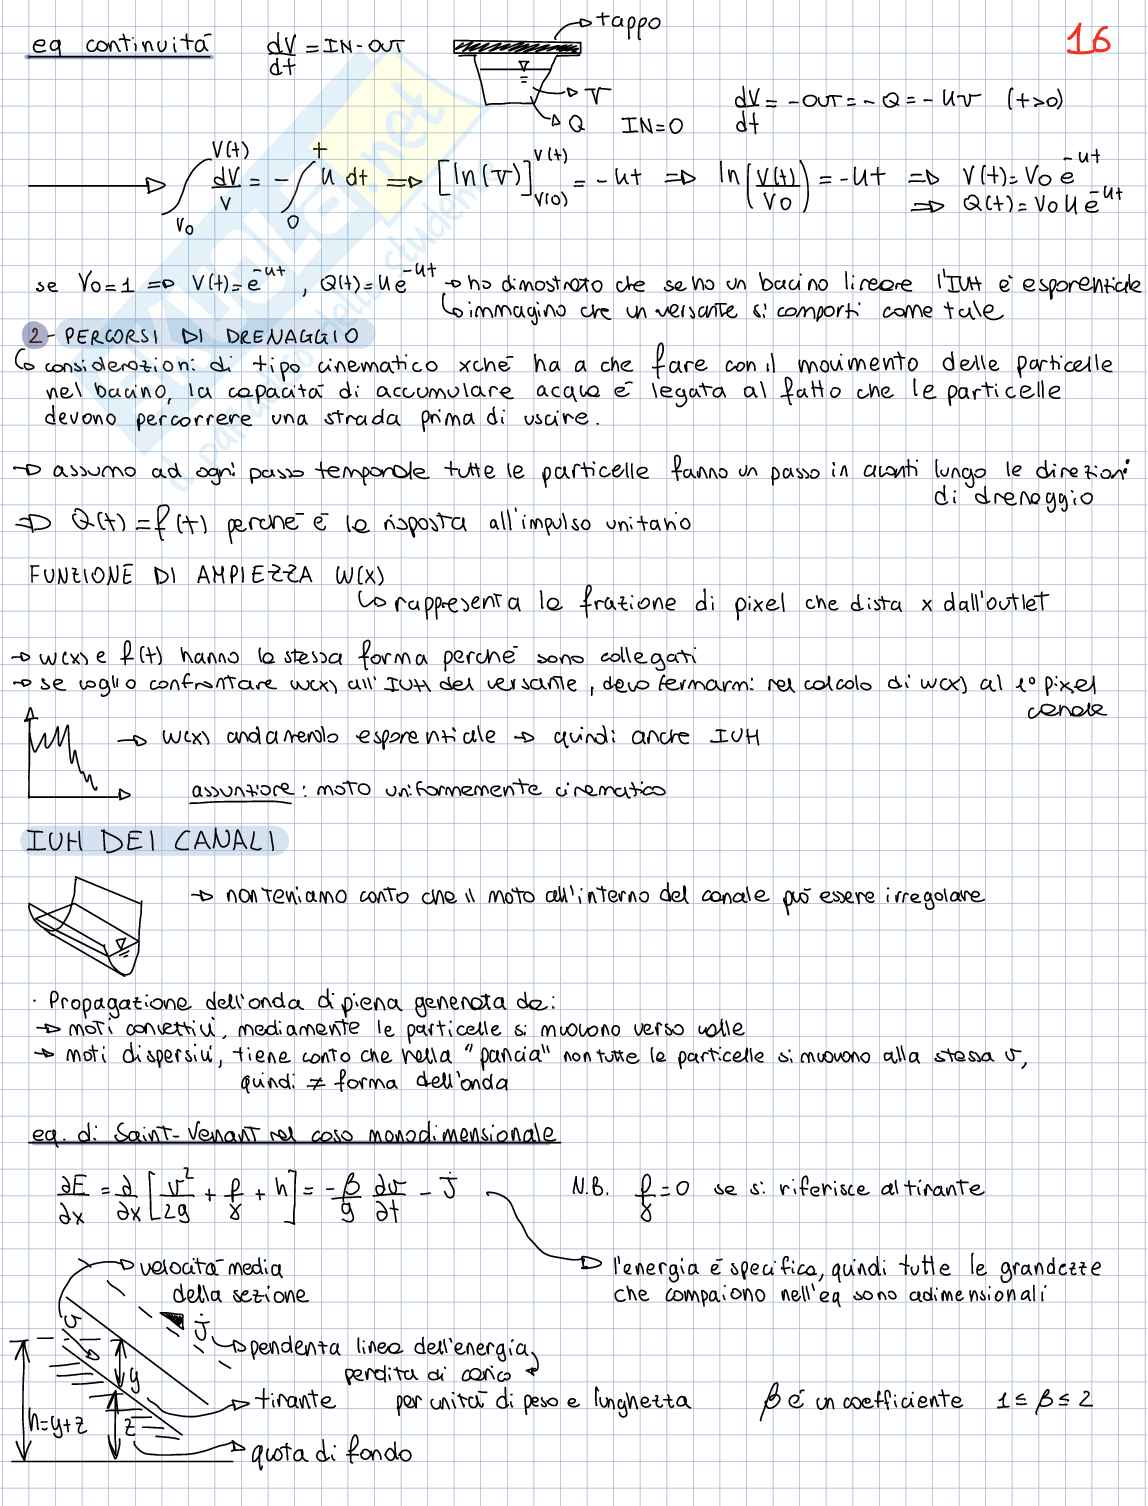 16
eq continuità dV/dt = IN-OUT
tappo
V
Q IN=0
dV/dt = -OUT = -Q = -uV (t>0)
∫_{V0}^{V(t)} dV/V = -∫_0^t u dt => [ln(V)]_{V(0)}^{V(t)} = -ut => ln(V(t)/V0) = -ut => V(t)=V0 e^{-ut}
=> Q(t)=V0 u e^{-ut}
se V0=1 => V(t)=e^{-ut}, Q(t)=ue^{-ut} → ho dimostrato che se ho un bacino lineare l'IUH è esponenziale
↳ immagino che un versante si comporti come tale
2-PERCORSI DI DRENAGGIO
↳ considerazioni di tipo cinematico xché ha a che fare con il movimento delle particelle
nel bacino, la capacità di accumulare acqua è legata al fatto che le particelle
devono percorrere una strada prima di uscire.
→ assumo ad ogni passo temporale tutte le particelle fanno un passo in avanti lungo le direzioni
di drenaggio
=> Q(t)=f(t) perché è la risposta all'impulso unitario
FUNZIONE DI AMPIEZZA W(X)
↳ rappresenta la frazione di pixel che dista x dall'outlet
→ w(x) e f(t) hanno la stessa forma perché sono collegati
→ se voglio confrontare w(x) all'IUH del versante, devo fermarmi nel calcolo di w(x) al 1° pixel
canale
→ w(x) andamento esponenziale → quindi anche IUH
assunzione: moto uniformemente cinematico
IUH DEI CANALI
→ non teniamo conto che il moto all'interno del canale può essere irregolare
· Propagazione dell'onda di piena generata da:
→ moti convettivi, mediamente le particelle si muovono verso valle
→ moti dispersivi, tiene conto che nella "pancia" non tutte le particelle si muovono alla stessa v,
quindi ≠ forma dell'onda
eq. di Saint-Venant nel caso monodimensionale
∂E/∂x = ∂/∂x [v²/2g + p/γ + h] = -β/g ∂v/∂t - j
N.B. p/γ=0 se si riferisce al tirante
→ l'energia è specifica, quindi tutte le grandezze
che compaiono nell'eq sono adimensionali
velocità media
della sezione
v
j → pendenza linea dell'energia,
perdita di carico
per unità di peso e lunghezza
y
tirante
β è un coefficiente 1≤β≤2
h=y+z
z
quota di fondo